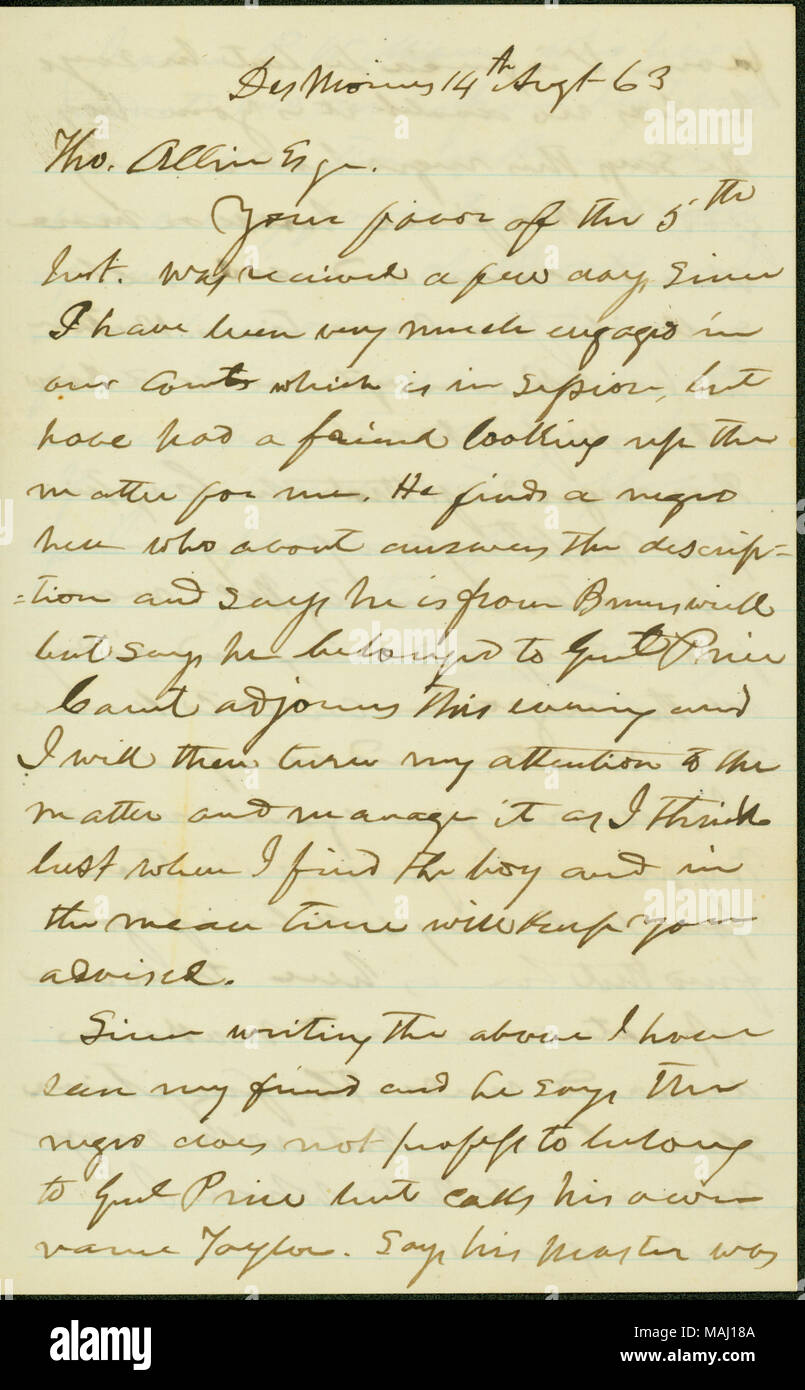 Des Moines 14th Augt 63
Tho. Allin Esqr.
Your favor of the 5th
Inst. was received a few days since
I have been very much engaged in
our Courts which is in session, but
have had a friend looking up the
matter for me. He finds a negro
here who about answers the descrip=
=tion and says he is from Brunswick
but says he belonged to Genl Price
Court adjourns this evening and
I will then turn my attention to the
matter and manage it as I think
best when I find the boy and in
the mean time will keep you
advised.
Since writing the above I have
seen my friend and he says the
negro does not profess to belong
to Genl Price but calls his own
name Taylor. Says his master was
alamy
Image ID: MAJ18A
www.alamy.com